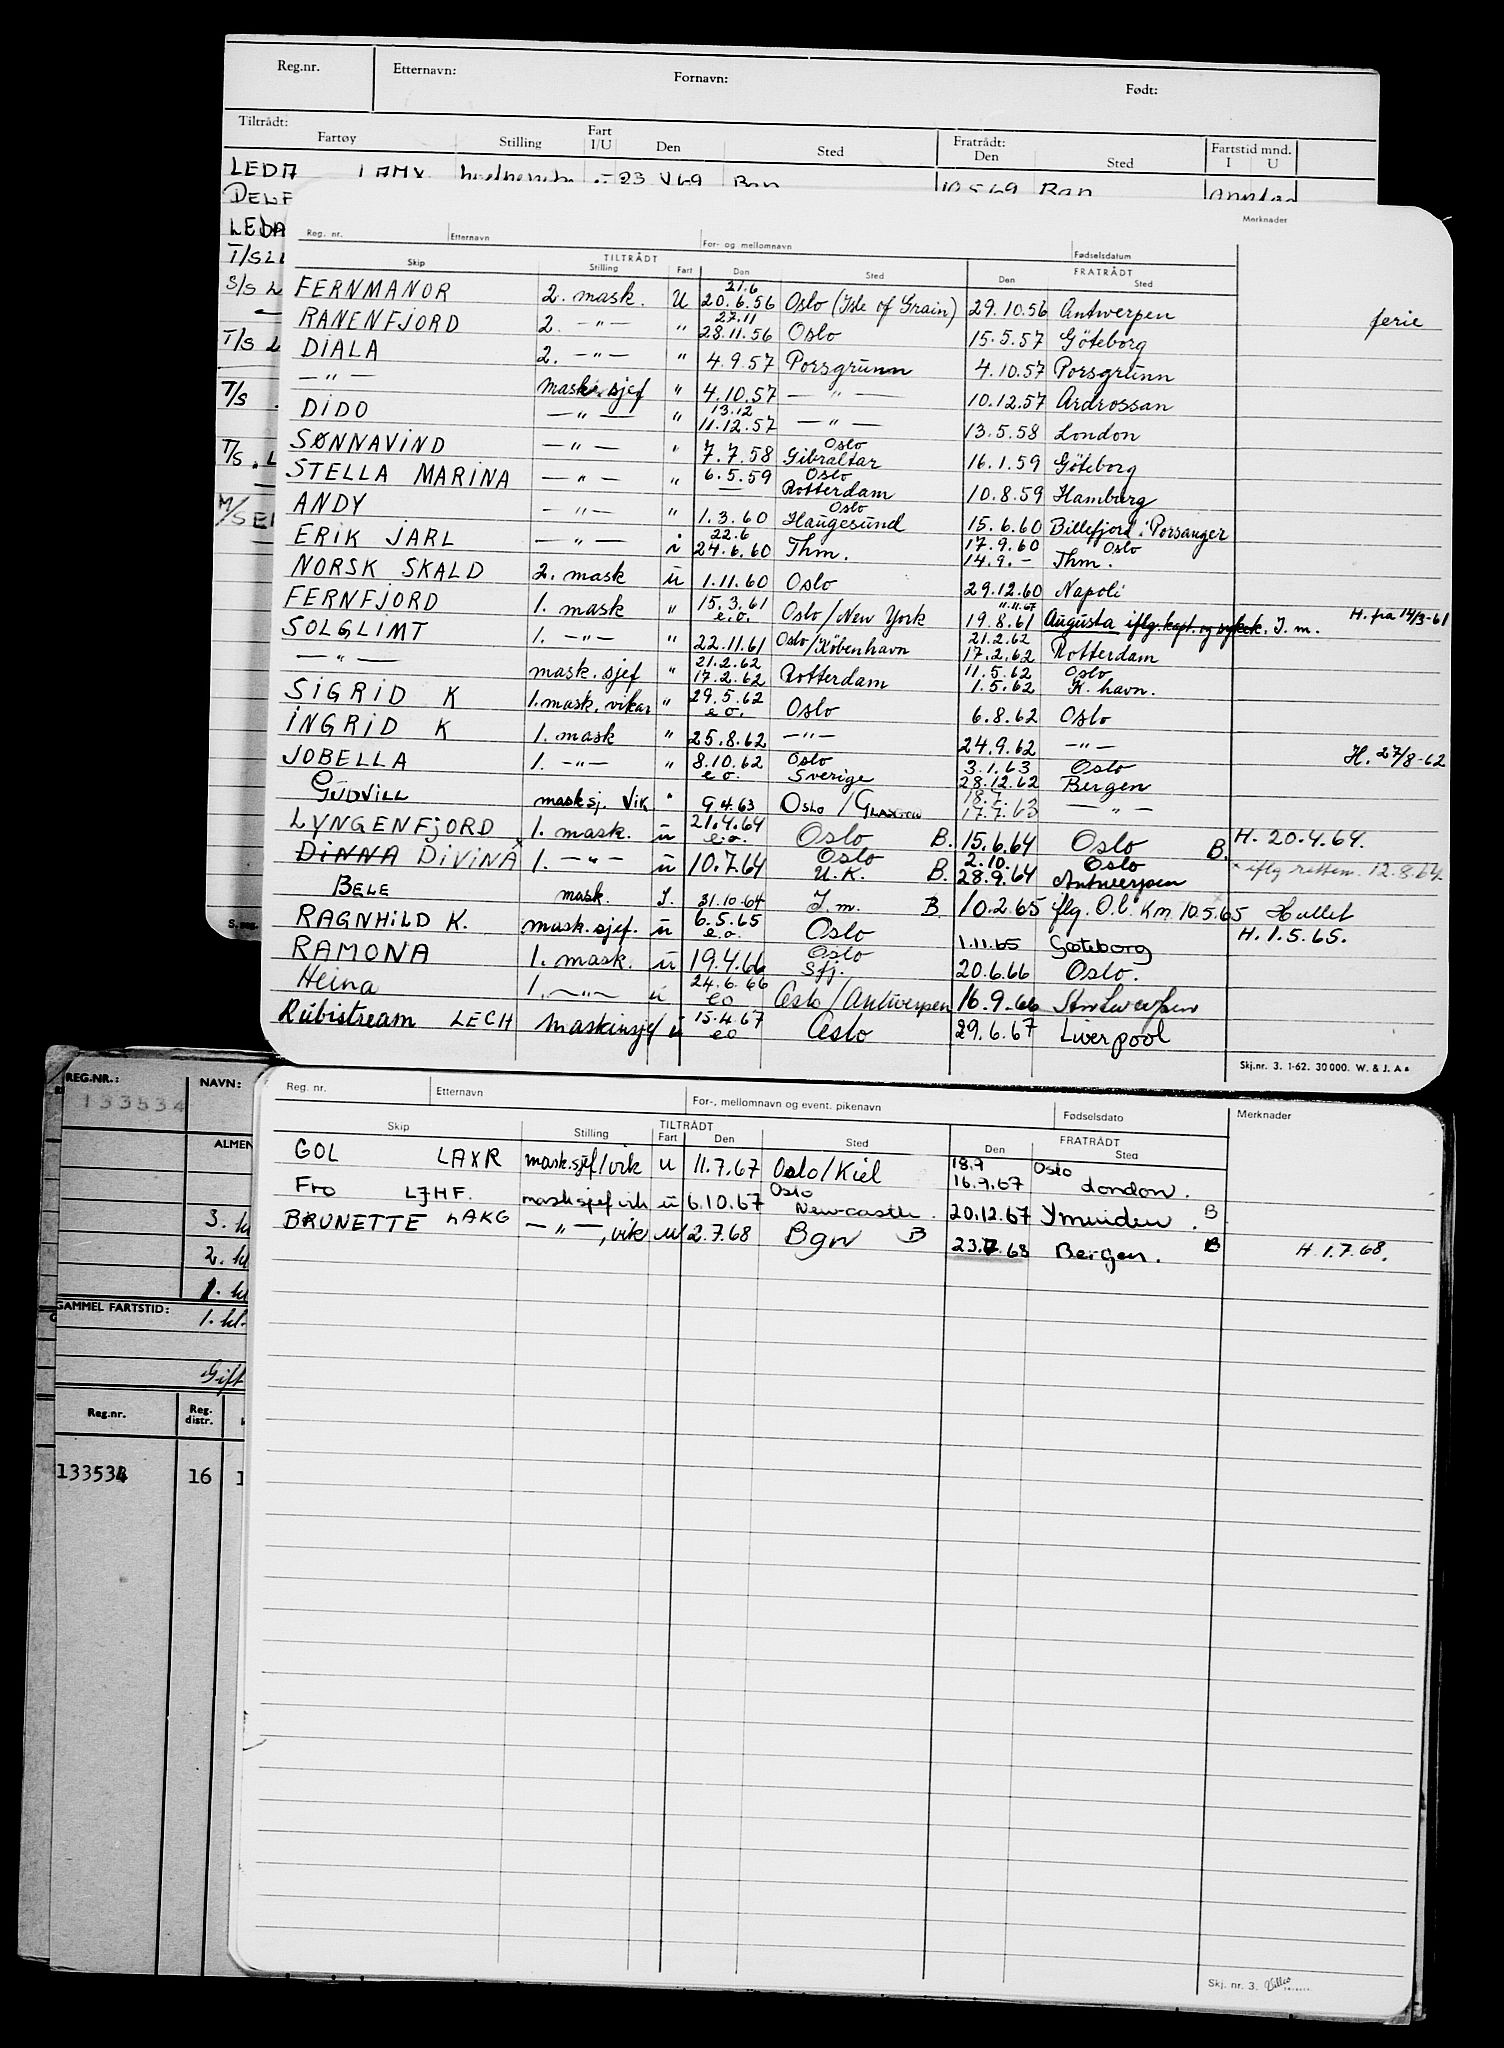 Reg.nr. Etternavn: Fornavn: Født:
Tiltrådt: Fratrådt: Fartstid mnd.
Fartøy Stilling Fart I/U Den Sted Den Sted I U
LEDA LAMX 23 V69 Bgn 10.5.69 Bgn
LEDA
T/S
S/S
T/S
T/S
T/S
M/S
Reg. nr. Etternavn For- og mellomnavn Fødselsdatum Merknader
TILTRÅDT FRATRÅDT
Skip Stilling Fart Den Sted Den Sted
FERNMANOR 2. mask. U 21.6 20.6.56 Oslo (Isle of Grain) 29.10.56 Antwerpen ferie
RANENFJORD 2. —"— " 27.11 28.11.56 Oslo 15.5.57 Göteborg
DIALA 2. —"— " 4.9.57 Porsgrunn 4.10.57 Porsgrunn
—"— mask.sjef " 4.10.57 —"— 10.12.57 Ardrossan
DIDO —"— " 13.12 11.12.57 —"— 13.5.58 London
SØNNAVIND —"— " 7.7.58 Oslo Gibraltar 16.1.59 Göteborg
STELLA MARINA —"— " 6.5.59 — Oslo Rotterdam 10.8.59 Hamburg
ANDY —"— " 1.3.60 Oslo Haugesund 15.6.60 Billefjord i Porsanger
ERIK JARL —"— i 22.6 24.6.60 Thm. 17.9.60 14.9.- Oslo Thm.
NORSK SKALD 2. mask u 1.11.60 Oslo 29.12.60 Napoli
FERNFJORD 1. mask " 15.3.61 e.o. Oslo/New York 11.11.67 19.8.61 Augusta iflg. kapt. og I.m. H. fra 14/3-61
SOLGLIMT 1. —"— " 22.11.61 Oslo/København 21.2.62 17.2.62 Rotterdam
—"— mask.sjef " 21.2.62 17.2.62 Rotterdam 11.5.62 1.5.62 Oslo K.havn.
SIGRID K 1.mask. vikar " 29.5.62 e.o. Oslo 6.8.62 Oslo
INGRID K 1. mask " 25.8.62 —"— 24.9.62 —"— H. 27/8-62
JOBELLA 1. —"— " 8.10.62 e.o. Oslo Sverige 3.1.63 28.12.62 Oslo Bergen
GUDVILL masksj. Vik " 9.4.63 OSLO / GLASGOW 18.7. 17.7.63 —"—
LYNGENFJORD 1. mask. u 21.4.64 e.o. Oslo B. 15.6.64 Oslo B. H. 20.4.64.
DINNA DIVINA × 1. —"— u 10.7.64 Oslo U.K. B. 2.10. 28.9.64 Oslo Antwerpen × iflg retten. 12.8.64
BELE mask. I. 31.10.64 I.m. B 10.2.65 flg. O.b. Km 10.5.65 Hullet
RAGNHILD K. mask.sjef. u 6.5.65 e.o. Oslo 1.11.65 Gøteborg H. 1.5.65.
RAMONA 1. mask. u 19.4.66 Oslo Sfj. 20.6.66 Oslo.
Heina 1. —"— u 24.6.66 eo Oslo/Antwerpen 16.9.66 Antwerpen
Rubistream LECH Maskinsjef u 15.4.67 eo Oslo 29.6.67 Liverpool
Skj.nr. 3. 1-62. 30000. W. & J. A s
REG.NR.: NAVN:
133534
ALMEN
3. kl
2. kl
1. kl
GAMMEL FARTSTID: 1. kl.
Gift
Reg.nr. Reg. distr.
133534 16 1
Reg. nr. Etternavn For-, mellomnavn og event. pikenavn Fødselsdato Merknader
TILTRÅDT FRATRÅDT
Skip Stilling Fart Den Sted Den Sted
GOL LAXR mask.sjef/vik u 11.7.67 Oslo/Kiel 18.9 16.9.67 Oslo London.
Fro LJHF. mask sjef vik u 6.10.67 Oslo Newcastle. 20.12.67 Ymuiden. B
BRUNETTE LAKG —"—, vik u 2.7.68 Bgn B 23.7.68 Bergen. B H. 1.7.68.
Skj. nr. 3.